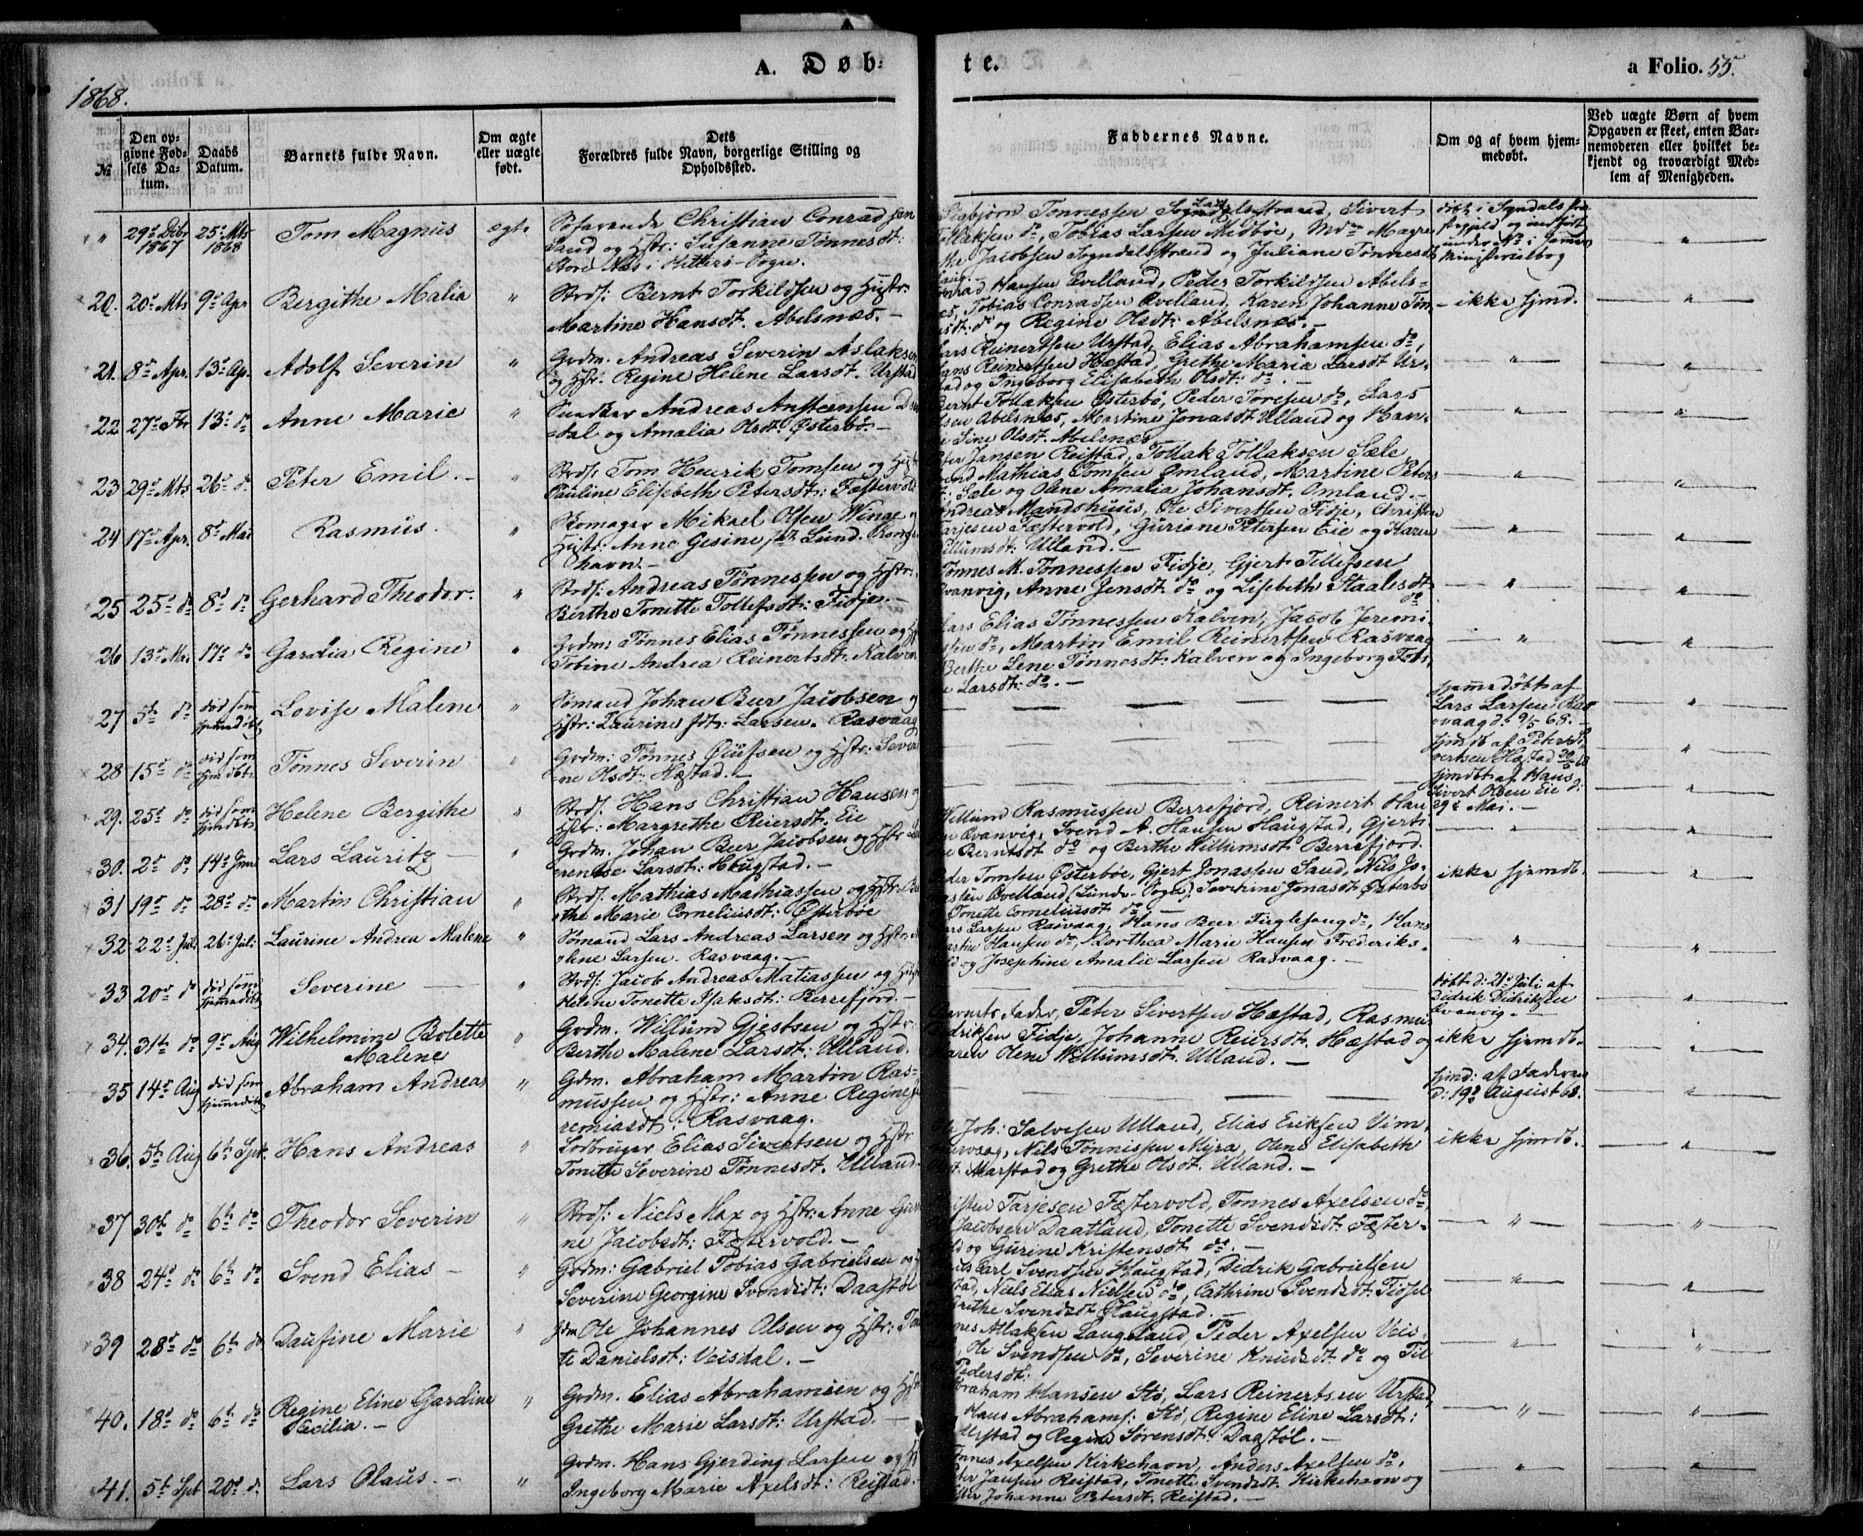 A. Døbte.
a Folio. 55.
1868.
№
Den opgivne Fødsels Datum.
Daabs Datum.
Barnets fulde Navn.
Om ægte eller uægte født.
Dets Forældres fulde Navn, borgerlige Stilling og Opholdssted.
Faddernes Navne.
Om og af hvem hjemmedøbt.
Ved uægte Børn af hvem Opgaven er skeet, enten Barnemoderen eller hvilket bekjendt og troværdigt Medlem af Menigheden.
" 29de Dcbr 1867 25de Mts 1868 Tom Magnus ægte
Søfarende Christian Conradsen
Sand og Hstr: Susanne Tønnesdt:
Store Næs i Hitterø-Sogn.
Sigbjørn Tønnessen Sogndalsstrand, Sivert
Tollaksen do, Tobias Larsen Midbøe, Mdm Magre
the Jacobsen Sogndalsstrand og Juliane Tønnesdt
20. 20de Mts 9de Apr Bergithe Malia "
Strds: Bernt Torkildsen og Hustr:
Martine Hansdt. Abelsnæs.-
Conrad Hansen Qvelland, Peder Torkildsen Abels-
næs, Tobias Conradsen Qvelland, Karen Johanne Tøn
nesdt: do og Regine Olsdt: Abelsnæs.-
ikke hjmd.
21. 8de Apr. 13de Ap. Adolf Severin "
Grdm. Andreas Severin Aslaksen
og Hstr: Regine Helene Larsdt. Urstad
Lars Reinertsen Urstad, Elias Abrahamsen do,
Hans Reinertsen Hæstad, Grethe Maria Larsdt Ur-
stad og Ingeborg Elisabeth Olsdt: do.-
22 27de Fbr 13de do Anne Marie "
Andreas Anstensen
dal og Amalia Olsdt: Østerbø.-
Bernt Tollaksen Østerbø, Peder Toresen do, Lars
Olsen Abelsnæs, Martine Jonasdt Ulland og Han-
ne Sine Olsdt. Abelsnæs
23 29de Mts 26de d. Peter Emil.- "
Strds: Tom Henrik Tomsen og Hustr
Pauline Elisebeth Petersdt: Fæstervold
Peter Jansen Reistad, Tollak Tollaksen Sæle
Svend Mathias Tomsen Ømland, Martine Peters
dt. Sæle og Olene Amalia Johansdt. Omland.-
24 17de Apr. 8de Mai Rasmus. "
Skomager Mikael Olsen Winge og
Hustr: Anne Gesine f. Lund. Konge-
havn.-
Andreas Mandshuus, Ole Sivertsen Fidje, Christen
Tarjesen Fæstervold, Guriane Petersen Eie og Karen
Villumsdt: Ulland.-
25 25de do 8de do Gerhard Theodor. "
Strds: Andreas Tønnessen og Hstr:
Berthe Tonette Tollefsdt: Fidje.-
Tønnes M. Tønnessen Fidje, Gjert Tillefsen
Qvanvig, Anne Jensdt: do og Lisebeth Staalesdt
do
26 13de Mai 17de do Garalia Regine "
Grdm: Tønnes Elias Tønnessen og H
Tobine Andrea Reinertsdt. Kalven
Lars Elias Tønnessen Kalven, Jacob Jeremi-
assen do, Martin Emil Reinertsen Rasvaag
Berthe Lene Tønnesdt: Kalven og Ingeborg Tobi
e Larsdt: do.-
27 5te do død som hjemmedøbt Lovise Malene "
Sømand Johan Beer Jacobsen og
Hstr: Laurine fdt: Larsen. Rasvaag
hjemmedøbt af
Lars Larsen Ras
vaag d: 9/5 68.-
28 15de do død som hjmdøbt Tønnes Severin "
Grdm: Tønnes Olufsen og Hstr: Severi
ne Olsdt: Hæstad.-
hjmdb af Peter Si
vertsen Hæstad 20/5 68
29. 25de do død som hjemdøbt Helene Bergithe "
Strds: Hans Christian Hansen og
Hstr: Margrethe Reiersdt: Eie
hjmdbt af Hans
Sivert Olsen Eie d:
29de Mai.-
30. 2de do 14de Juni Lars Lauritz "
Grdm. Johan Beer Jacobsen og Hstr
erentse Larsdt: Haugstad.-
Willund Rasmussen Berrefjord, Reinert Han
sen Qvanvig, Svend A. Hansen Haugstad, Gjerti
ne Berntsdt do og Berthe Willumsdt Berrefjord.
31 19de do 28de do Martin Christian "
Strds: Mathias Mathiassen og Hstr: Be
the Marie Corneliusdt: Østerbøe
Peder Tomsen Østerbøe, Gjert Jonassen Sand, Nils Jo-
Qvelland (Lunde-Sogn), Severine Jonasdt Østerbø
Tonette Corneliusdt do
ikke hjemdt.
32. 22de Juli 26de Juli Laurine Andrea Malene "
Sømand Lars Andreas Larsen og Hstr:
lene Larsen. Rasvaag.-
Lars Larsen Rasvaag, Hans Beer Fuglesang do, Hans
Martin Hansen do, Dorthea Marie Hansen Frederiks-
og Josephine Amalie Larsen Rasvaag.-
33. 20de do død som hjemmedøbt Severine "
Strds: Jacob Andreas Matiassen og Hust
Helene Tonette Isaksdt: Berrefjord.-
døbt d: 21de Juli af
Didrik Didriksen
Qvanvig.-
34. 31te do 9de Aug Wilhelmine Bolette Malene "
Grdm. Willund Gjertsen og Hstr:
Berthe Malene Larsdt: Ulland.
Barnets Fader, Peter Sivertsen Hæstad, Rasmus
Didriksen Fidje, Johanne Reiersdt. Hæstad og
Karen Olene Willumsdt: Ulland.-
ikke hjemdt.
35 14de Aug død som hjemmedøbt Abraham Andreas "
Gdm. Abraham Martin Ras-
mussen og Hstr: Anne Regine Je
remiasdt: Rasvaag.
hjmd: af Faderen
d: 19de August 68.
36. 5te Aug 6te Sptr. Hans Andreas "
Lodbruger Elias Sivertsen og Hstr
Tonette Severine Tønnesdt. Ulland.
Joh: Salvesen Ulland, Elias Eriksen Vim,
Nils Tønnissen Myra, Olene Elisabeth
Marstad og Grethe Olsdt. Ulland.-
ikke hjemdt.
37 30te do 6te do Theodor Severin "
Strds: Niels Max og Hstr: Anne Guri
ne Jacobsdt: Fæstervold.-
Kristen Tarjesen Fæstervold, Tonnes Axelsen do,
Jacobsen Daatland, Tonette Svendsdt Fæster-
vold og Gurine Kristensdt do.-
38 24de do 6te do Svend Elias- "
Grdm: Gabriel Tobias Gabrielsen og
Severine Georgine Svendsdt: Daastøl
Carl Svendsen Haugstad, Didrik Gabrielsen
Niels Elias Nielsen do, Cathrine Svendsdt Fidsel
Grethe Svendsdt Haugstad.-
39 28de do 6te do Daufine Marie "
Gdm Ole Johannes Olsen og Hstr: Ton
te Danielsdt: Veisdal.-
Atlaksen Laugeland, Peder Axelsen Veis-
Ole Svendsen do, Severine Knudsdt do og
Pedersdt:
40. 18de do 6te do Regine Eline Gardine Cecilia.- "
Grdm. Elias Abrahamsen og Hstr
Grethe Marie Larsdt: Urstad.-
Abraham Hansen Stø, Lars Reinertsen Urstad,
Hans Abrahams: Stø, Regine Eline Larsdt:
Urstad og Regine Sørensdt: Dagstøl.-
41. 5te Spt 20de d. Lars Olaus.- "
Grdm. Hans Gjerding Larsen og H
Ingeborg Marie Axelsdt: Reistad.
Tønnes Axelsen Kirkehavn, Anders Axelsen do,
Peter Jansen Reistad, Tonette Svendsdt. Kirkehavn og
Johanne Petersdt. Reistad.-